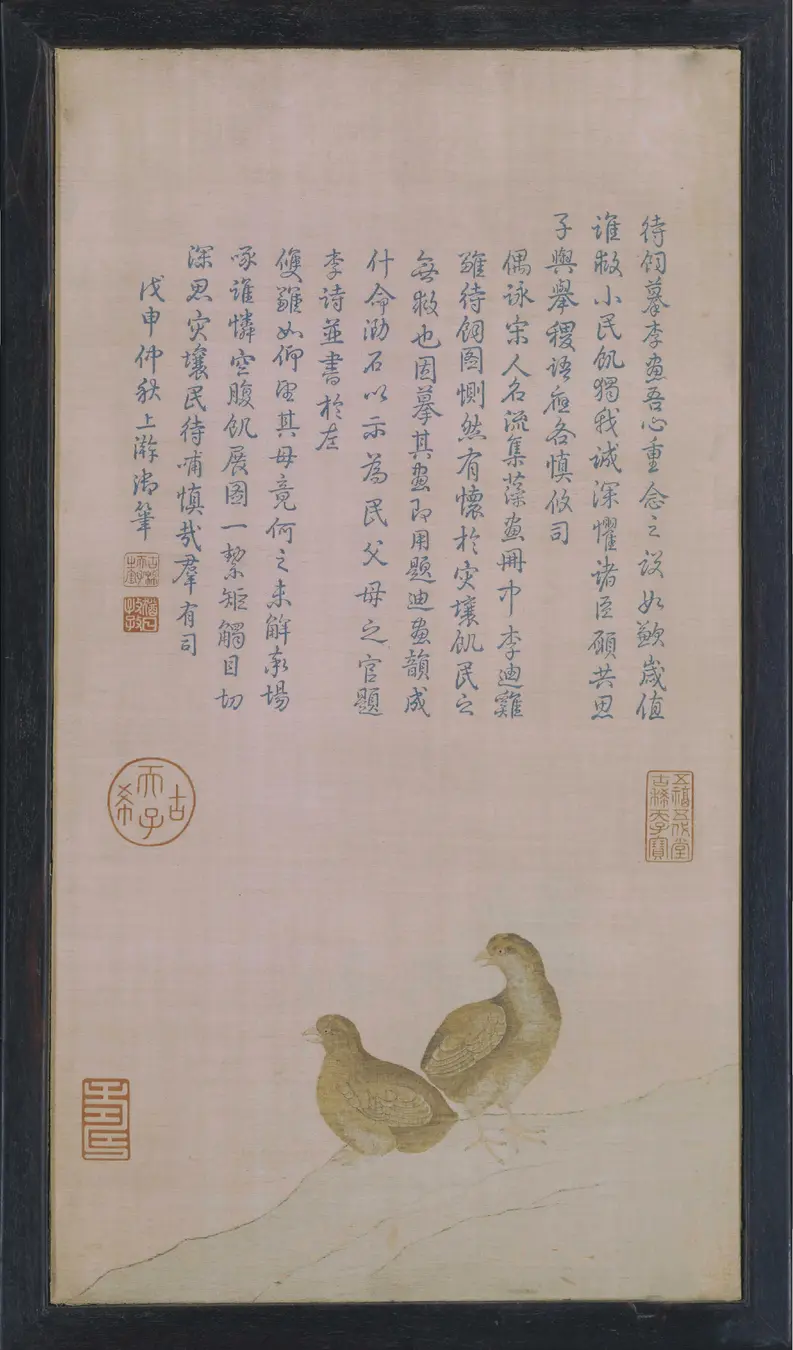 待飼摹李畫吾心重念之設如歉歲值
誰救小民飢獨我誠深懼諸臣願共思
子輿舉稷語應各慎攸司
偶詠宋人名流集藻畫冊中李迪雞
雛待飼圖惻然有懷於灾壤飢民之
無救也因摹其畫即用題迪畫韻成
什命泐石以示為民父母之官題
李詩並書於左
雙雛如仰望其母竟何之未解索場
啄誰憐空腹飢展圖一絜矩觸目切
深思灾壤民待哺慎哉羣有司
戊申仲秋上澣御筆
古稀天子
猶日孜孜
五福五代堂古稀天子寶
古希天子